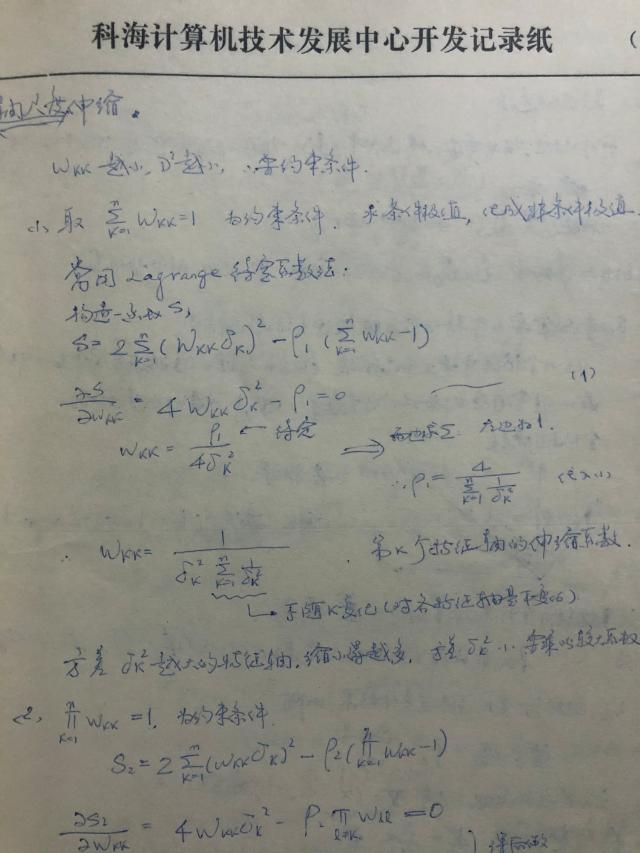 科海计算机技术发展中心开发记录纸 (
尺度伸缩。
W_KK 越小, D² 越小, ∴需约束条件.
<1> 取 ∑_{K=1}^{n} W_KK = 1 为约束条件. 求条件极值, 化成非条件极值.
常用 Lagrange 待定系数法:
构造一函数 S,
S = 2∑_{K=1}^{n}(W_KK δ_K)² − ρ₁(∑_{K=1}^{n} W_KK − 1)
∂S/∂W_KK = 4W_KK δ_K² − ρ₁ = 0 (1)
W_KK = ρ₁/4δ_K² ← 待定 ⇒ 两边求∑ 左边为1.
∴ρ₁ = 4/∑_{K=1}^{n} 1/δ_K² (代入(1)
∴ W_KK = 1/δ_K² ∑_{K=1}^{n} 1/δ_K² . 第K个特征轴的伸缩系数.
不随K变化(对各特征轴是不变的)
方差 δ_K² 越大的特征轴, 缩小得越多, 方差 δ_K² 小, 乘以较大加权
<2> ∏_{K=1}^{n} W_KK = 1, 为约束条件.
S₂ = 2∑_{K=1}^{n}(W_KK δ_K)² − ρ₂(∏_{K=1}^{n} W_KK − 1)
∂S₂/∂W_KK = 4W_KK δ_K² − ρ₂ ∏ W_ll = 0